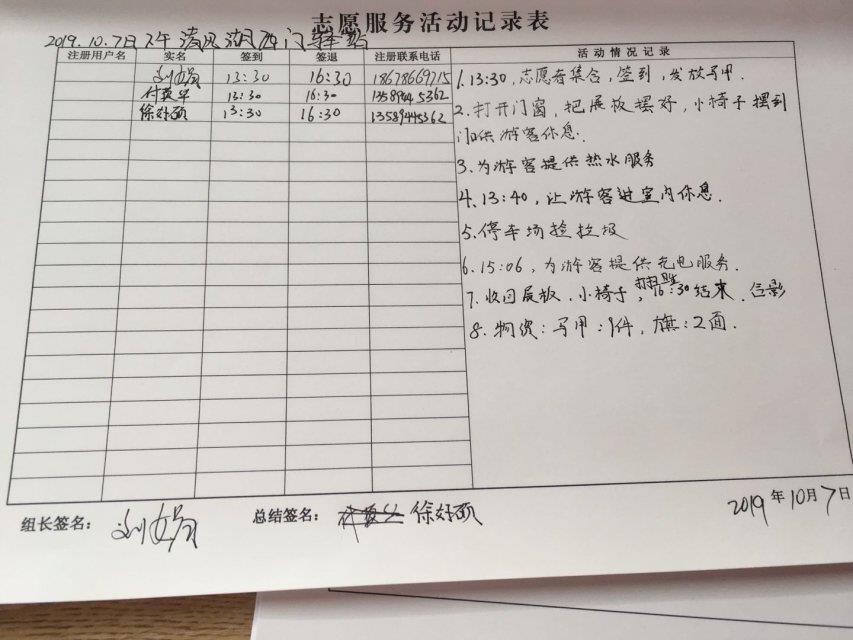 志愿服务活动记录表
2019.10.7日下午清风湖西门驿站
注册用户名 实名 签到 签退 注册联系电话 活动情况记录
刘娟 13:30 16:30 18678669715
13:30 16:30 13589445362
徐好硕 13:30 16:30 13589445362
1. 13:30,志愿者集合,签到,发放马甲.
2. 打开门窗,把展板摆好,小椅子摆到
门口供游客休息.
3. 为游客提供热水服务
4. 13:40,让游客进室内休息.
5. 停车场捡垃圾
6. 15:06,为游客提供充电服务.
7. 收回展板.小椅子,打扫卫生16:30结束.合影
8. 物资:马甲:9件,旗:2面.
组长签名: 刘娟 总结签名: 徐好硕
2019年10月7日